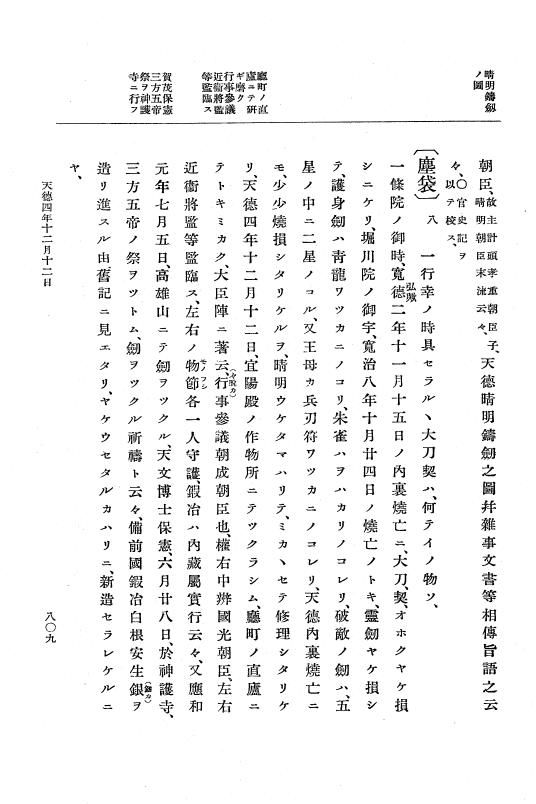 晴明鑄劔
ノ圖
廳町ノ直
廬ニテ硏
ギ磨ク
行事參議
近衞將監
等監臨ス
賀茂保憲
三方五帝
祭ヲ神護
寺ニ行フ
朝臣、故主計頭孝重朝臣子、天德晴明鑄劔之圖幷雜事文書等相傳旨語之云
晴明朝臣末流云々、
々、〇官史記ヲ
以テ校ス、
〔塵袋〕 八 一行幸ノ時具セラルヽ大刀契ハ、何テイノ物ソ、
一條院ノ御時、寬德二年十一月十五日ノ內裏燒亡ニ、大刀、契、オホクヤケ損
弘
シニケリ、堀川院ノ御宇、寬治八年十月廿四日ノ燒亡ノトキ、靈劔ヤケ損シ
テ、護身劔ハ靑龍ワツカニノコリ、朱雀ハヲハカリノコレリ、破敵ノ劔ハ、五
星ノ中ニ二星ノコル、又王母カ兵刃符ワツカニノコレリ、天德內裏燒亡ニ
モ、少々燒損シタリケルヲ、晴明ウケタマハリテ、ミカヽセテ修理シタリケ
リ、天德四年十二月十二日、宜陽殿ノ作物所ニテツクラシム、廳町ノ直廬ニ
テトキミカク、大臣陣ニ著云、行事參議朝成朝臣也、權右中辨國光朝臣、左右
(々脫カ)
近衞將監等監臨ス、左右ノ物節各一人守護、鍛冶ハ內藏屬實行云々、又應和
モノフシ
元年七月五日、高雄山ニテ劔ヲツクル、天文博士保憲、六月廿八日、於神護寺、
三方五帝ノ祭ヲツトム、劔ヲツクル祈禱ト云々、備前國鍛冶白根安生銀ヲ
造リ進スル由舊記ニ見エタリ、ヤケウセタルカハリニ、新造セラレケルニ
ヤ、
天德四年十二月十二日
八〇九